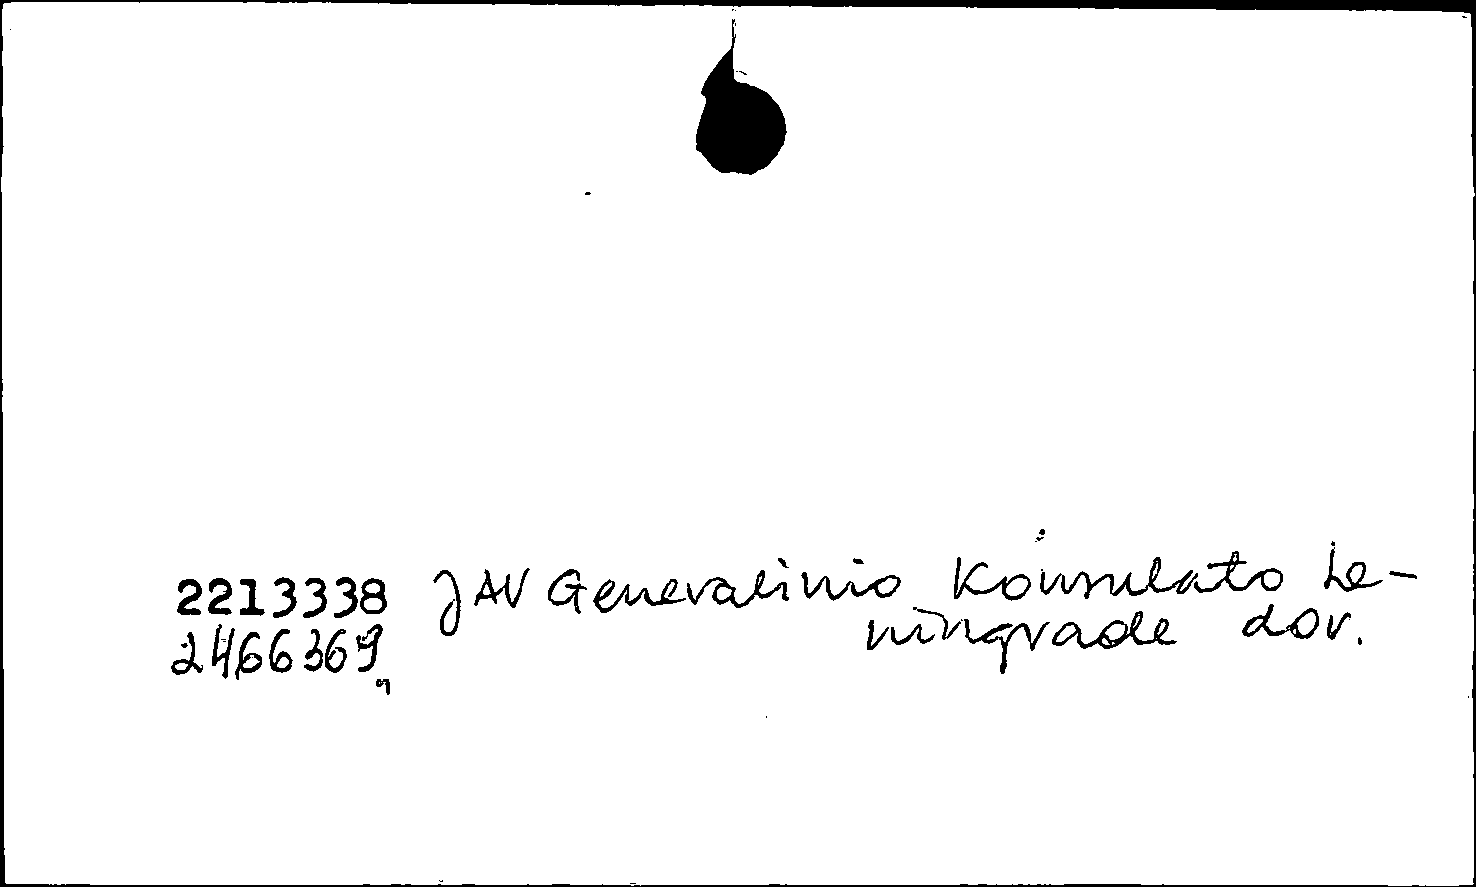 2213338 JAV Generalinio Konsulato Le-
ningrade dov.
2466369